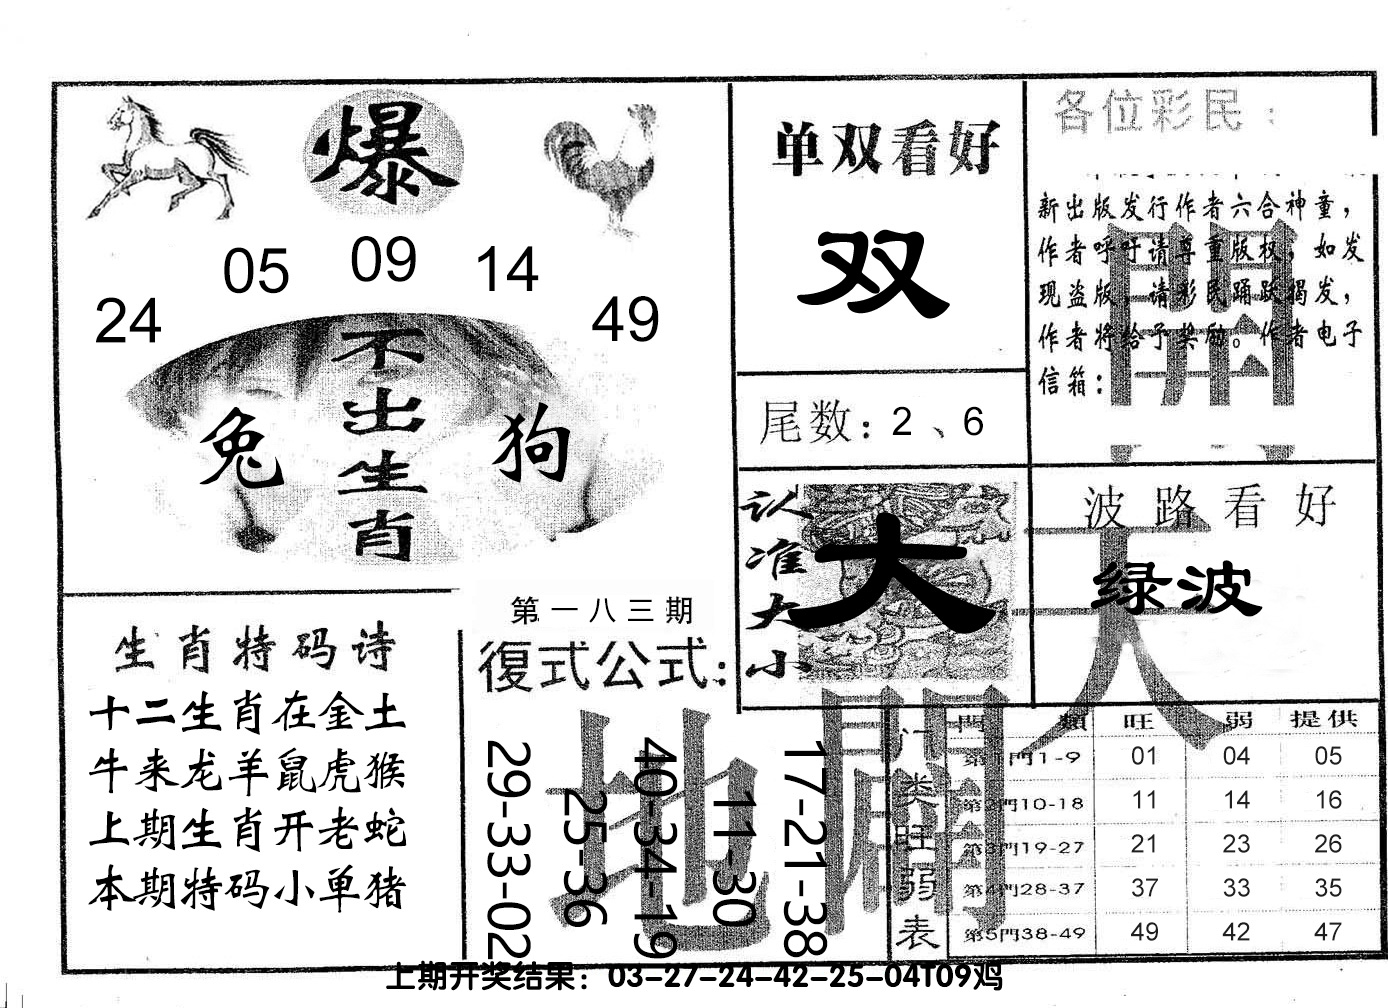 爆
05 09 14
24 49
不出生肖
兔 狗
单双看好
双
尾数：2、6
各位彩民：
新出版发行作者六合神童，
作者呼吁请尊重版权，如发
现盗版，请彩民踊跃揭发，
作者将给予奖励。作者电子
信箱：
開
认准大小
大
波路看好
绿波
天
生肖特码诗
十二生肖在金土
牛来龙羊鼠虎猴
上期生肖开老蛇
本期特码小单猪
第一八三期
復式公式：
29-33-02
25-36
40-34-19
11-30
17-21-38
地
開
门类旺弱表
門類 旺 弱 提供
第1門1-9 01 04 05
第2門10-18 11 14 16
第3門19-27 21 23 26
第4門28-37 37 33 35
第5門38-49 49 42 47
上期开奖结果：03-27-24-42-25-04T09鸡